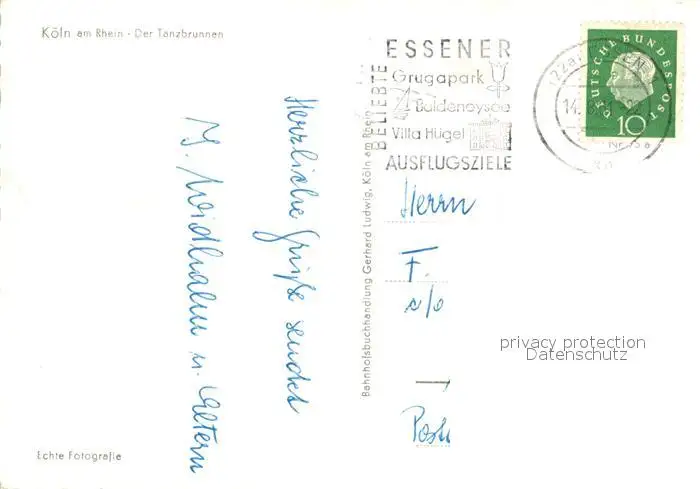 Köln am Rhein - Der Tanzbrunnen
Herzliche Grüße sendet
u. Eltern
Echte Fotografie
Bahnhofsbuchhandlung Gerhard Ludwig, Köln am Rhein
BELIEBTE
ESSENER
Grugapark
Baldeneysee
Villa Hügel
AUSFLUGSZIELE
DEUTSCHE BUNDESPOST
10
Herrn
F.
c/o
Post
privacy protection
Datenschutz